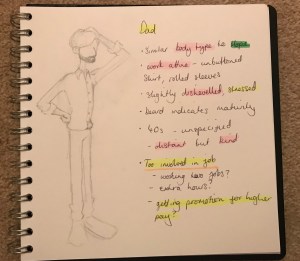 Dad
• Similar body type to
• work attire - unbuttoned
shirt, rolled sleeves
• Slightly dishevelled, stressed
• beard indicates maturity
• 40s - unspecified
- distant but kind
• Too involved in job
- working two jobs?
- extra hours?
- getting promotion for higher
pay?